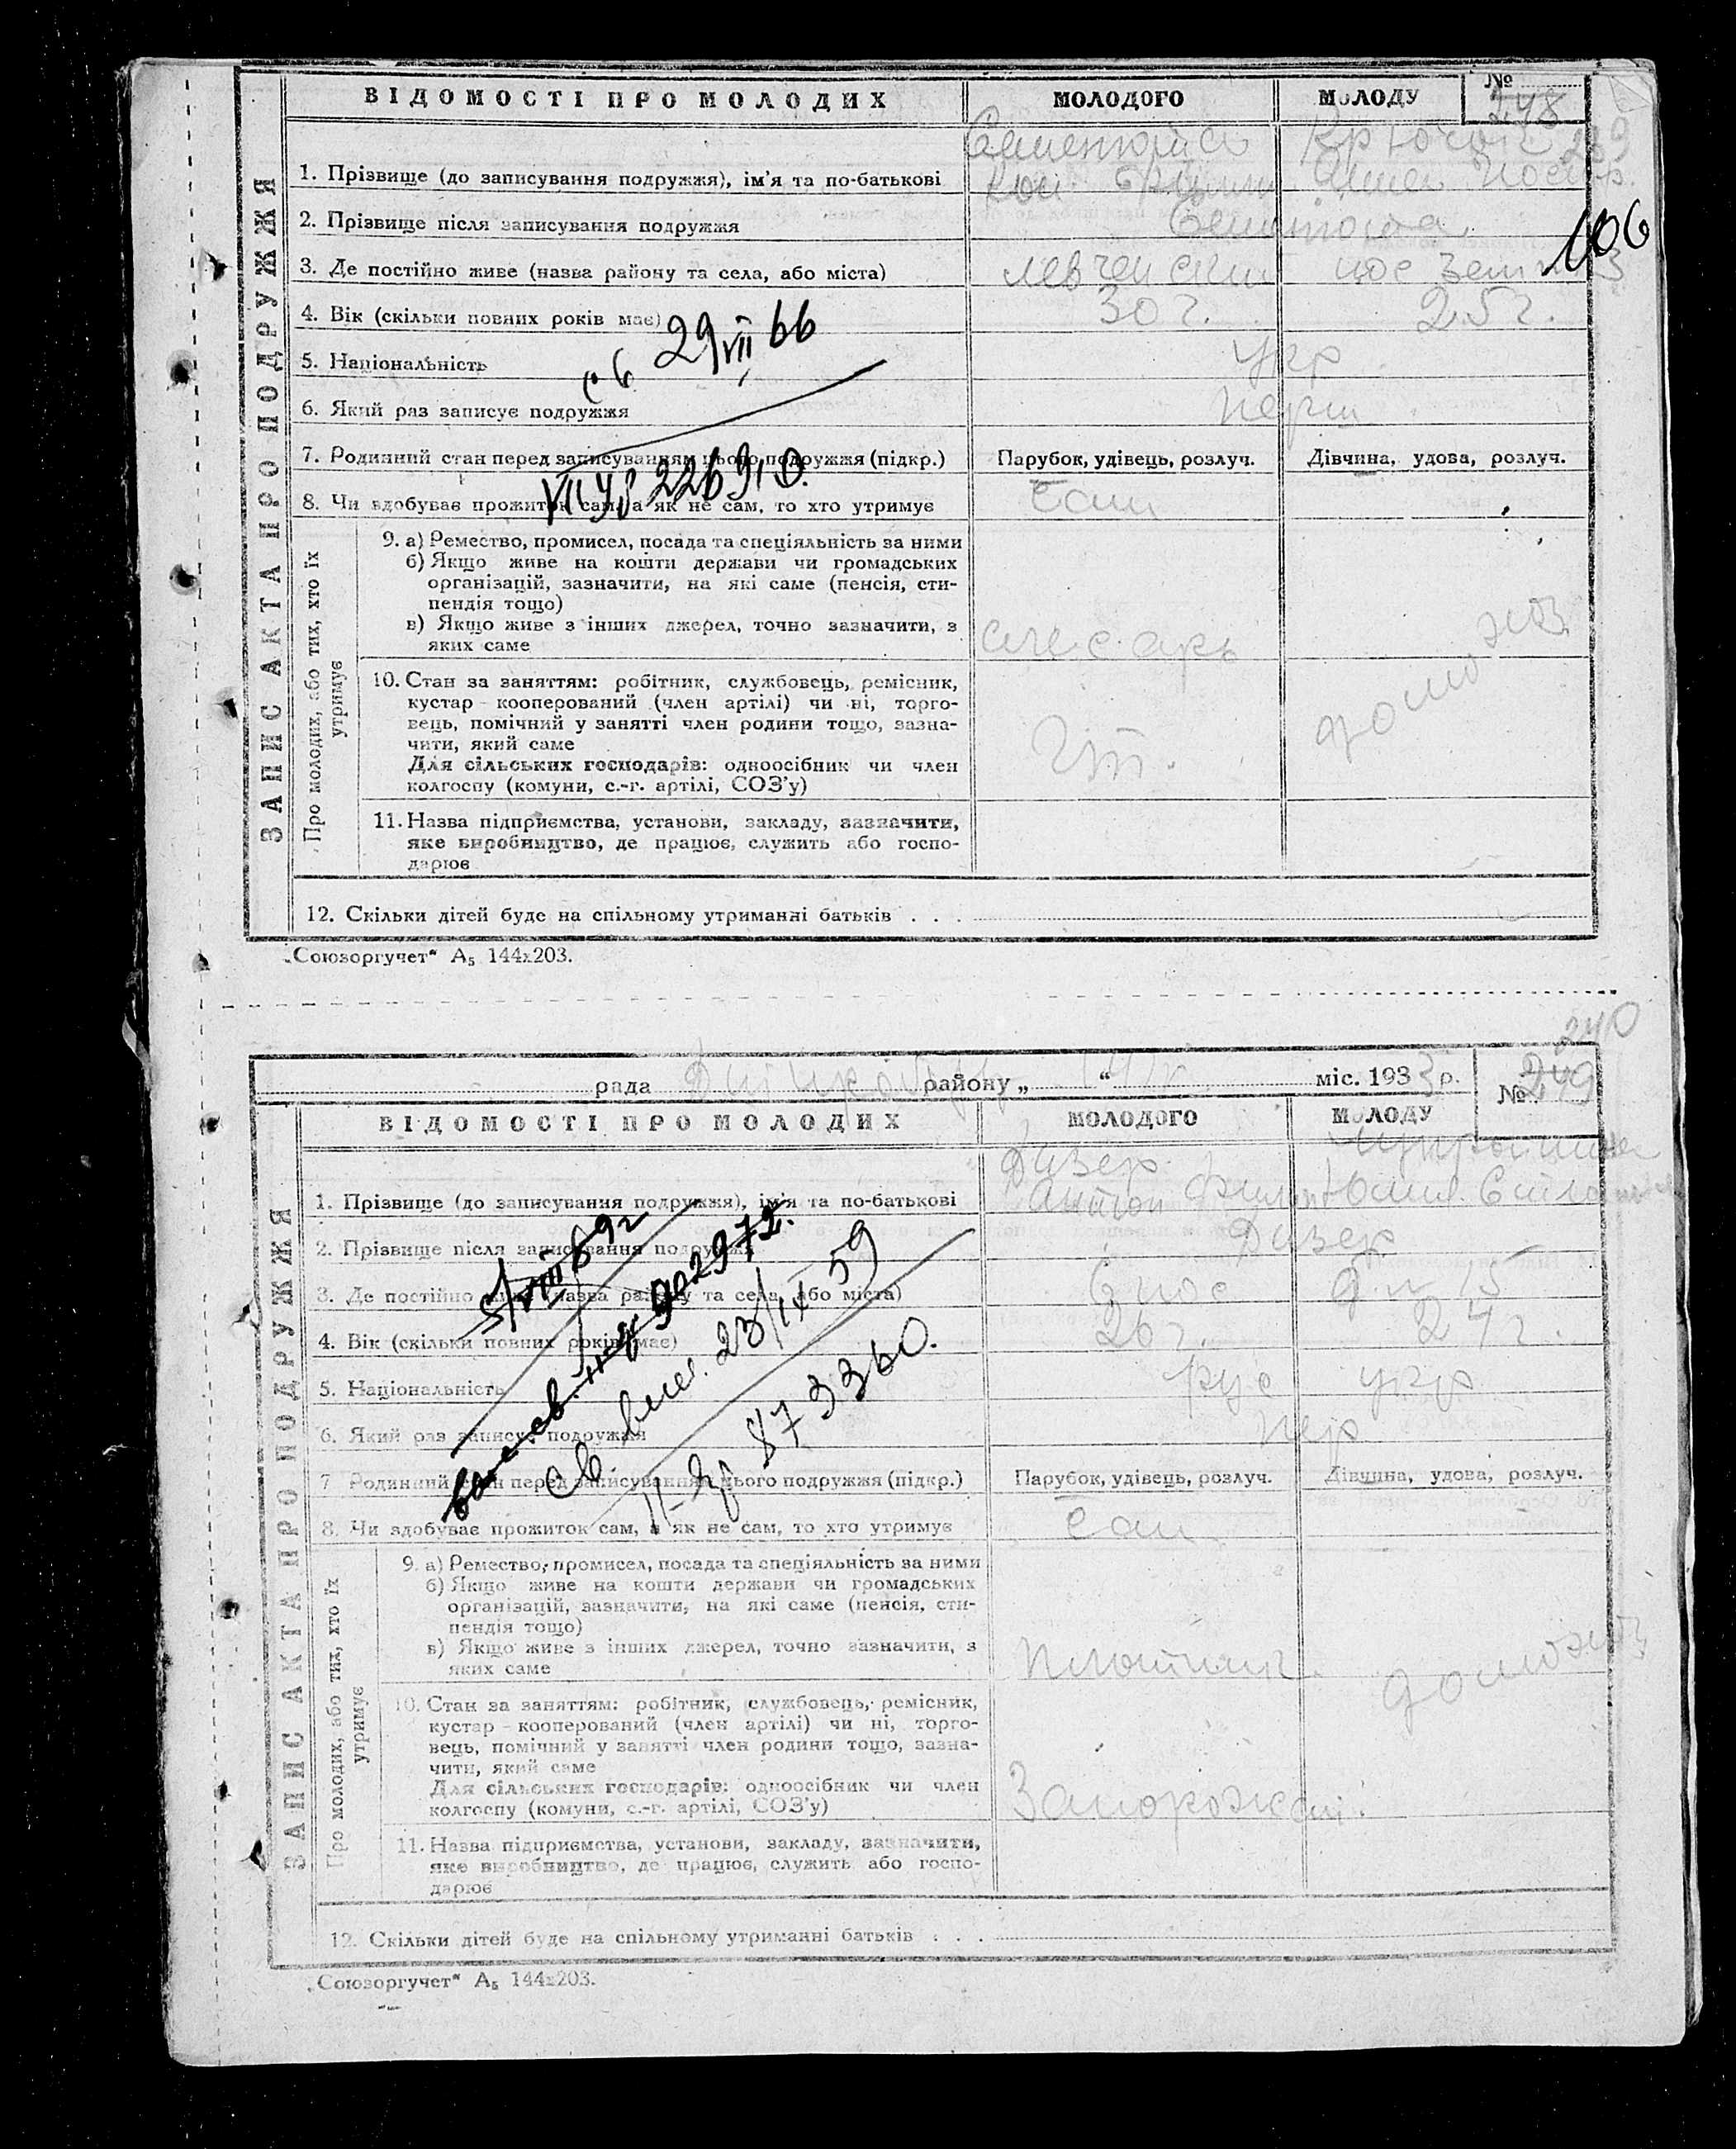 ВІДОМОСТІ ПРО МОЛОДИХ МОЛОДОГО МОЛОДУ №
248
239
ЗАПИС АКТА ПРО ПОДРУЖЖЯ
1. Прізвище (до записування подружжя), ім'я та по-батькові
2. Прізвище після записування подружжя
106
3. Де постійно живе (назва району та села, або міста)
4. Вік (скільки повних років має) 30 г. 25 г.
св 29/VII 66
5. Національність укр
6. Який раз записує подружжя перш
7. Родинний стан перед записуванням цього подружжя (підкр.) Парубок, удівець, розлуч. Дівчина, удова, розлуч.
8. Чи здобуває прожиток сам, а як не сам, то хто утримує сам
Про молодих, або тих, хто їх утримує
9. а) Ремество, промисел, посада та спеціяльність за ними
б) Якщо живе на кошти держави чи громадських
організацій, зазначити, на які саме (пенсія, сти-
пендія тощо)
в) Якщо живе з інших джерел, точно зазначити, з
яких саме слесарь
10. Стан за заняттям: робітник, службовець, ремісник,
кустар - кооперований (член артілі) чи ні, торго-
вець, помічний у занятті член родини тощо, зазна-
чити, який саме
Для сільських господарів: одноосібник чи член
колгоспу (комуни, с.-г. артілі, СОЗ'у)
11. Назва підприємства, установи, закладу, зазначити,
яке виробництво, де працює, служить або госпо-
дарює
12. Скільки дітей буде на спільному утриманні батьків . . .
„Союзоргучет" А₅ 144х203.
240
рада району „ “ міс. 1933 р. № 249
ВІДОМОСТІ ПРО МОЛОДИХ МОЛОДОГО МОЛОДУ
ЗАПИС АКТА ПРО ПОДРУЖЖЯ
Дизер
1. Прізвище (до записування подружжя), ім'я та по-батькові Антон Филип
2. Прізвище після записування подружжя Дизер
3. Де постійно живе (назва району та села, або міста) 6 пос
4. Вік (скільки повних років має) 26 г. 24 г.
св. 23/IX 59
873360.
5. Національність рус укр
6. Який раз записує подружжя пер
7 Родинний стан перед записуванням цього подружжя (підкр.) Парубок, удівець, розлуч. Дівчина, удова, розлуч.
8. Чи здобуває прожиток сам, а як не сам, то хто утримує сам
Про молодих, або тих, хто їх утримує
9. а) Ремество, промисел, посада та спеціяльність за ними
б) Якщо живе на кошти держави чи громадських
організацій, зазначити, на які саме (пенсія, сти-
пендія тощо)
в) Якщо живе з інших джерел, точно зазначити, з
яких саме плотник
10. Стан за заняттям: робітник, службовець, ремісник,
кустар - кооперований (член артілі) чи ні, торго-
вець, помічний у занятті член родини тощо, зазна-
чити, який саме
Для сільських господарів: одноосібник чи член
колгоспу (комуни, с.-г. артілі, СОЗ'у)
11. Назва підприємства, установи, закладу, зазначити,
яке виробництво, де працює, служить або госпо-
дарює
12. Скільки дітей буде на спільному утриманні батьків . . .
„Союзоргучет" А₅ 144х203.